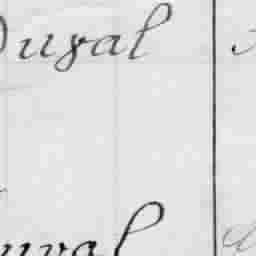 Duval
uval